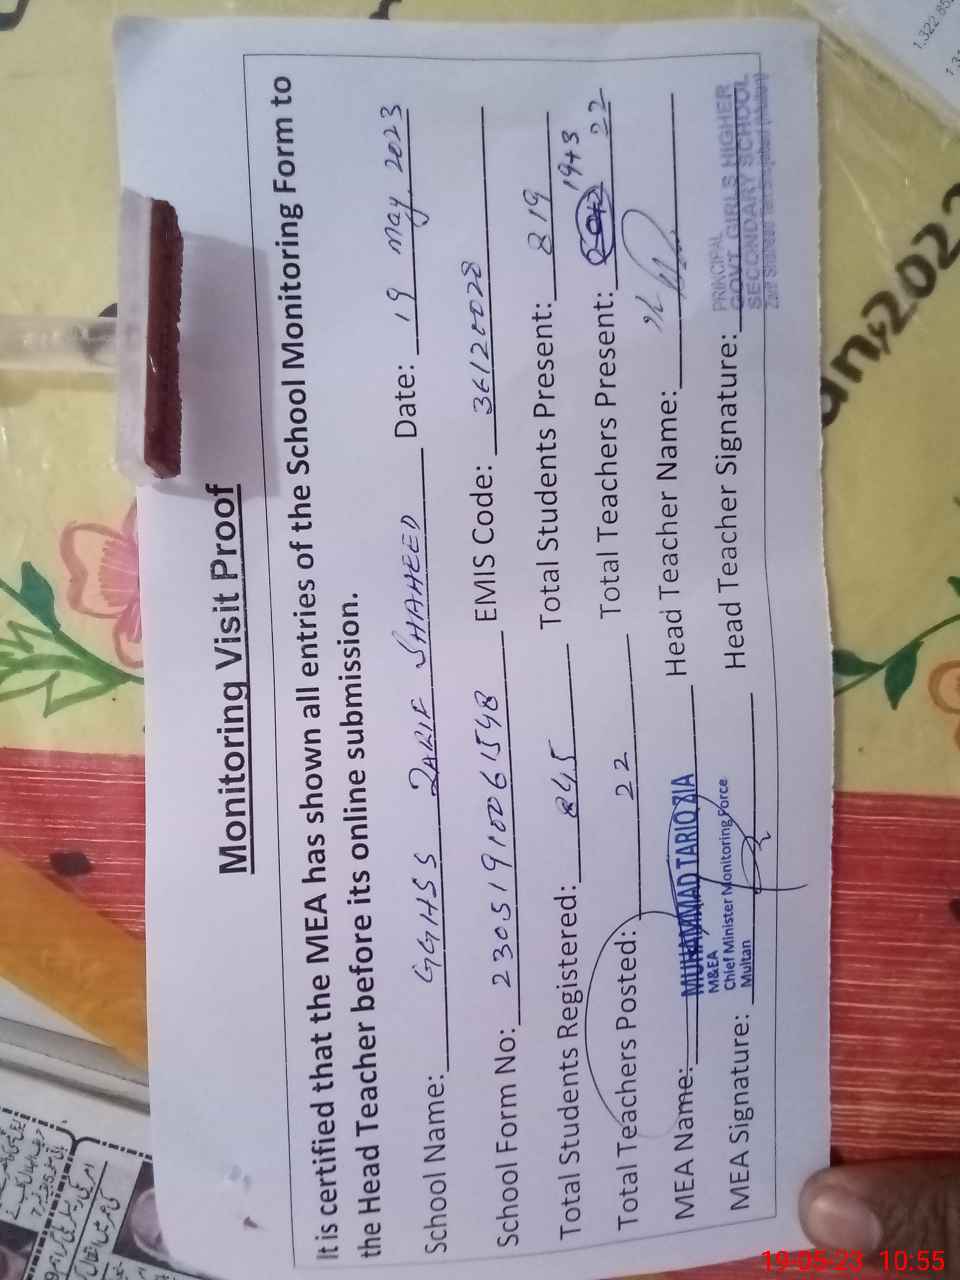 Monitoring Visit Proof
It is certified that the MEA has shown all entries of the School Monitoring Form to
the Head Teacher before its online submission.
School Name: GGHSS ZARIF SHAHEED Date: 19 May 2023
School Form No: 23051910061548 EMIS Code: 36120028
Total Students Registered: 845 Total Students Present: 819
19+3
Total Teachers Posted: 22 Total Teachers Present: 22
MEA Name: MUHAMMAD TARIQ ZIA Head Teacher Name:
M&EA
Chief Minister Monitoring Force
Multan
MEA Signature: Head Teacher Signature:
PRINCIPAL
GOVT GIRLS HIGHER
SECONDARY SCHOOL
19-05-23 10:55